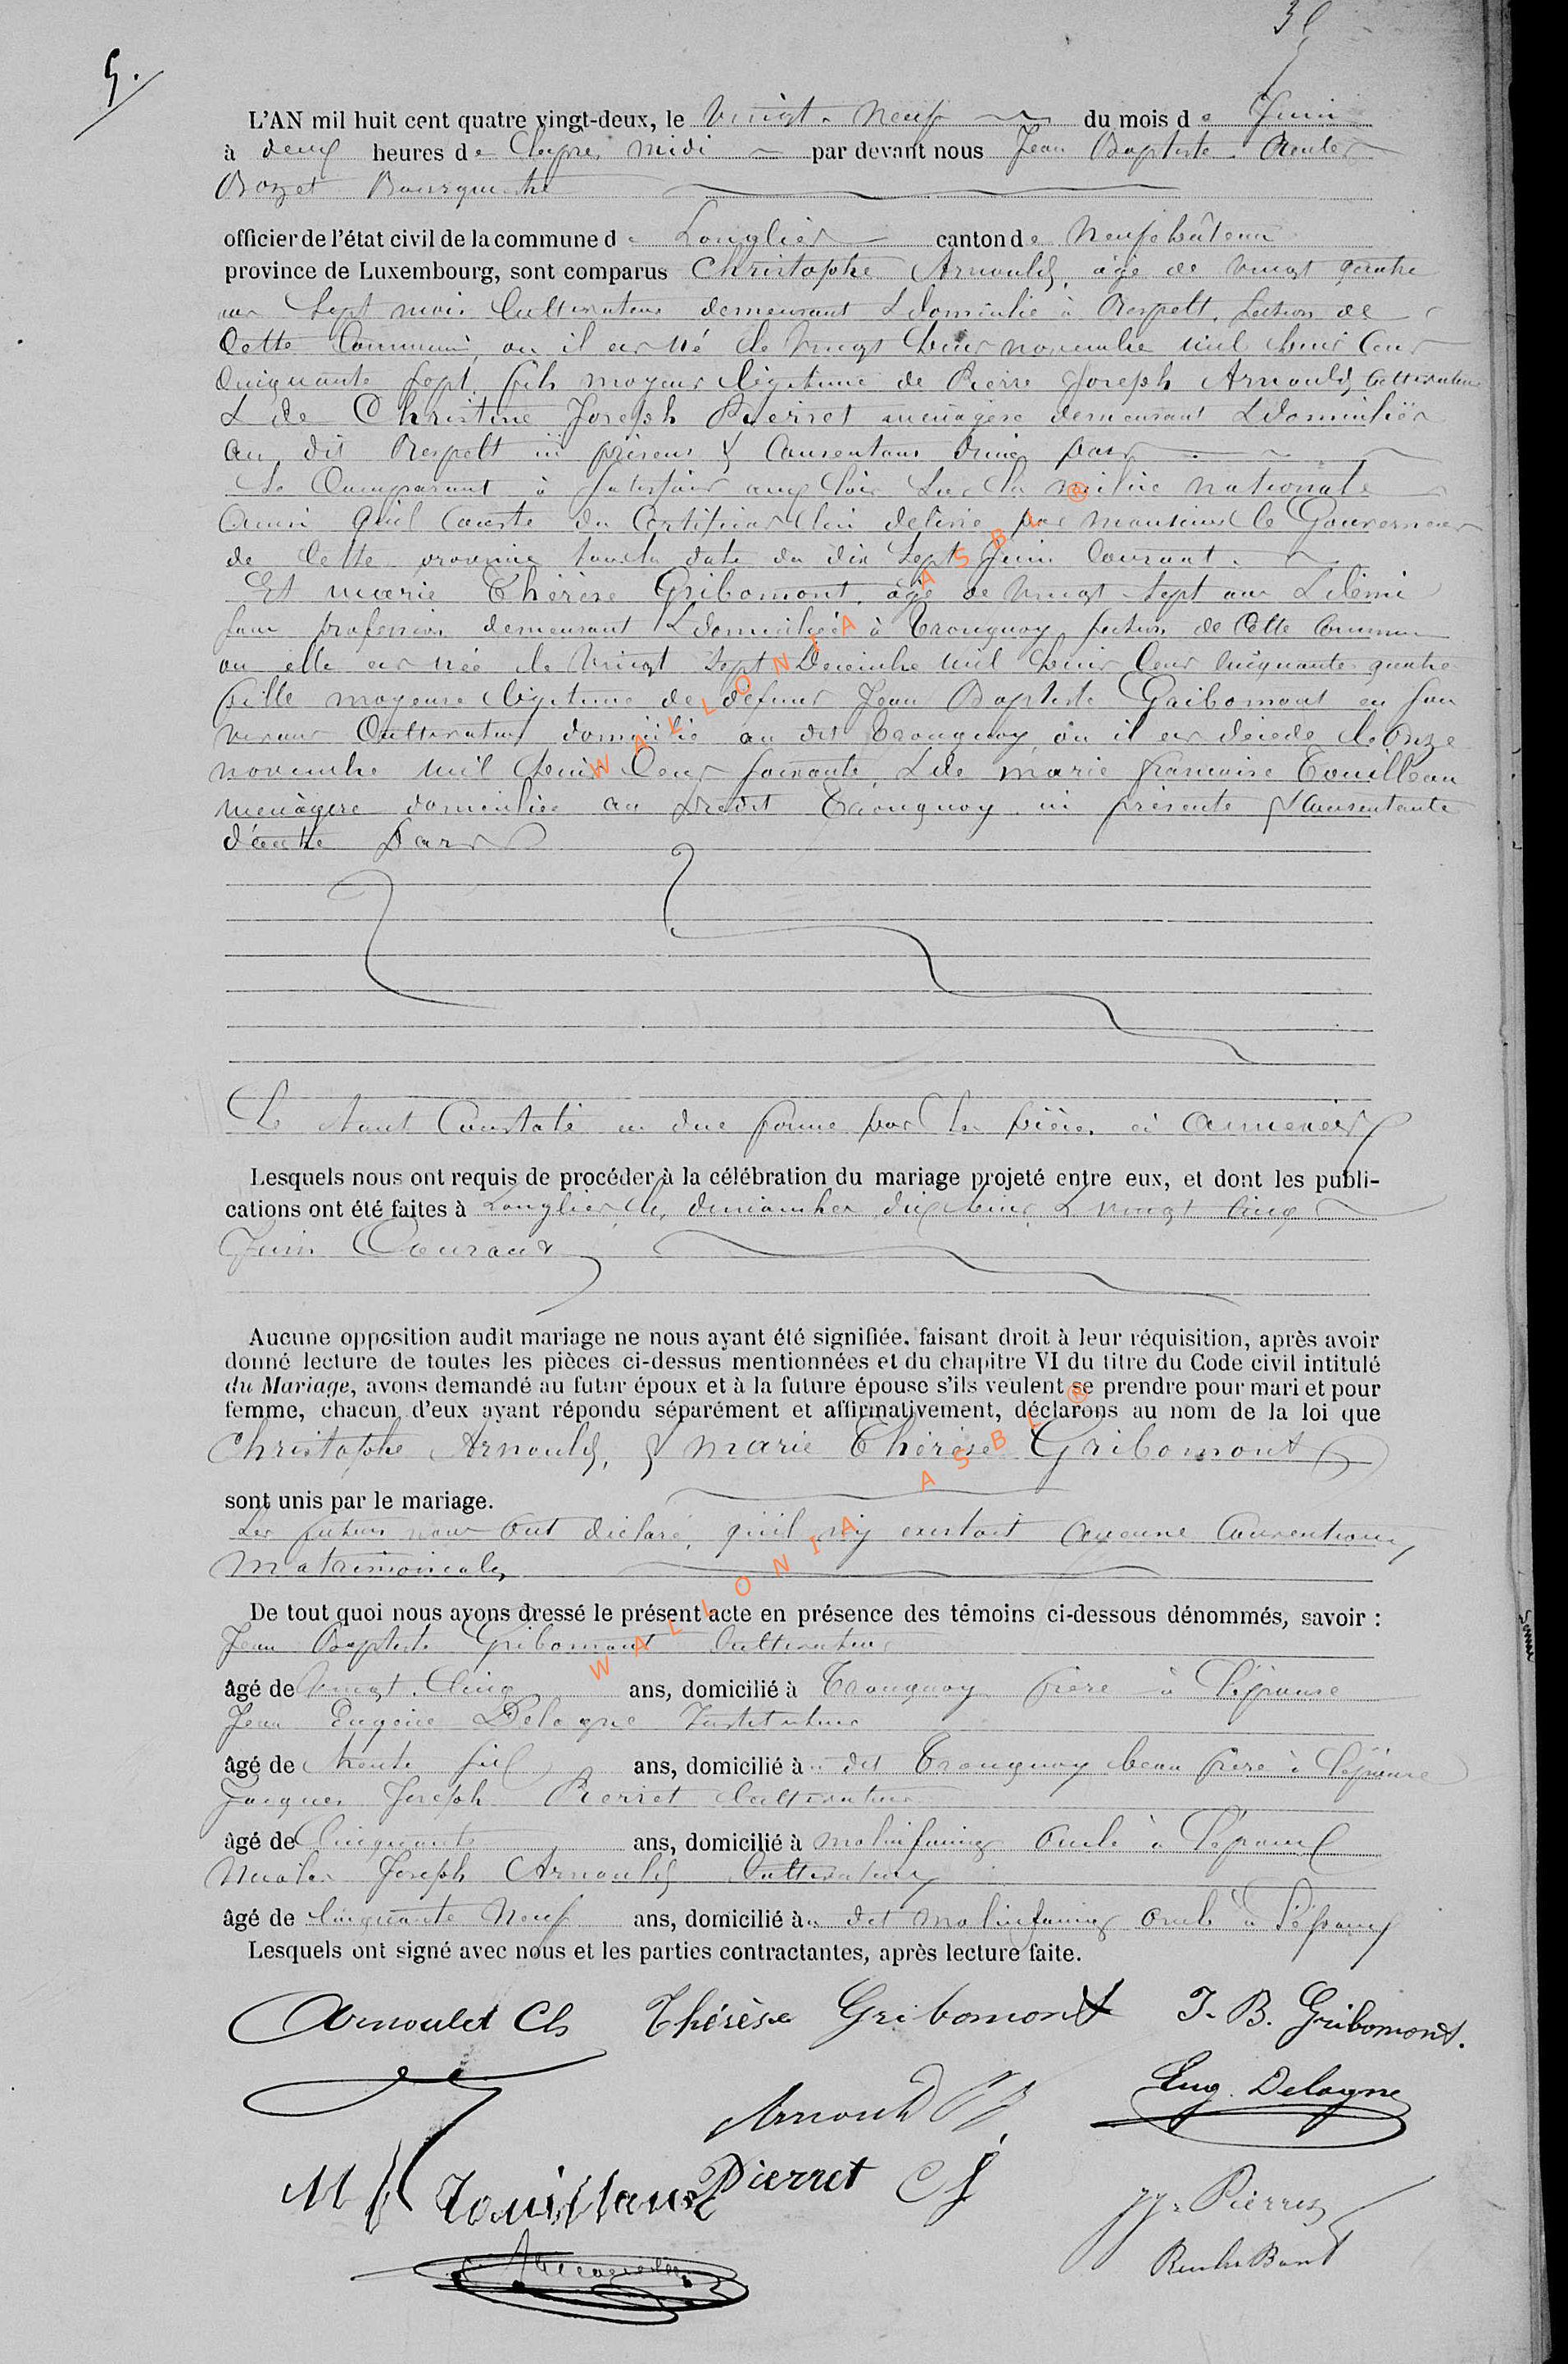 5.
L'AN mil huit cent quatre vingt-deux, le Vingt-Neuf du mois de Juin
à deux heures de l'apres midi par devant nous Jean Baptiste Reuler
Bourgmestre
officier de l'état civil de la commune de Longlier canton de Neufchâteau
province de Luxembourg, sont comparus Christophe Arnould, âgé de vingt quatre
ans Sept mois Cultivateur demeurant & domicilié à Respelt, Section de
Cette Commune, ou il est né le Vingt huit novembre mil huit Cent
Cinquante Sept, fils majeur légitime de Pierre Joseph Arnould, Cultivateur
& de Christine Joseph Pierret menagère demeurant & domiciliés
au dit Respelt ici présens & Consentans d'une part
Le Comparant à Satisfait aux lois Sur la milice nationale
Ainsi qu'il Conste du Certificat lui délivré par monsieur le Gouverneur
de Cette province Sous la date du dix Sept Juin Courant.
Et marie Thérèse Gribomont, âgé de Vingt Sept ans & demi
Sans profession demeurant & domiciliée à Tronquoy Section de Cette Commune
ou elle est née le Vingt Sept Décembre mil huit Cent Cinquante quatre
fille majeure légitime de défunt Jean Baptiste Gribomont en Son
vivant Cultivateur domicilié au dit Tronquoy, où il est décédé le Onze
novembre mil huit Cent Soixante, & de marie francoise Touillaux
menagère domiciliée au Tronquoy ici présente & Consentante
d'autre part
Le tout Constaté en due forme par les pièces ci Annexées
Lesquels nous ont requis de procéder à la célébration du mariage projeté entre eux, et dont les publi-
cations ont été faites à Longlier les dimanches dix huit & vingt cinq
Juin Courant
Aucune opposition audit mariage ne nous ayant été signifiée, faisant droit à leur réquisition, après avoir
donné lecture de toutes les pièces ci-dessus mentionnées et du chapitre VI du titre du Code civil intitulé
du Mariage, avons demandé au futur époux et à la future épouse s'ils veulent se prendre pour mari et pour
femme, chacun d'eux ayant répondu séparément et affirmativement, déclarons au nom de la loi que
Christophe Arnould, & Marie Thérèse Gribomont
sont unis par le mariage.
Les futurs nous Ont déclaré, qu'il n'y existait Aucune Convention
Matrimoniale,
De tout quoi nous avons dressé le présent acte en présence des témoins ci-dessous dénommés, savoir :
Jean Baptiste Gribomont Cultivateur
âgé de Vingt-Cinq ans, domicilié à Tronquoy frère à l'épouse
Jean Eugène Delogne Instituteur
âgé de trente six ans, domicilié à dit Tronquoy beau frère à l'épouse
Jacques Joseph Pierret Cultivateur
âgé de Cinquante ans, domicilié à Molinfaing Oncle à l'époux
Nicolas Joseph Arnould Cultivateur
âgé de Cinquante Neuf ans, domicilié à dit Molinfaing Oncle à l'époux
Lesquels ont signé avec nous et les parties contractantes, après lecture faite.
Arnould Ch Thérèse Gribomont J. B. Gribomont.
Arnould PJ Eug. Delogne
M f Touillaux Pierret C J
JJ. Pierret
WALLONIA ASBL ®
WALLONIA ASBL ®